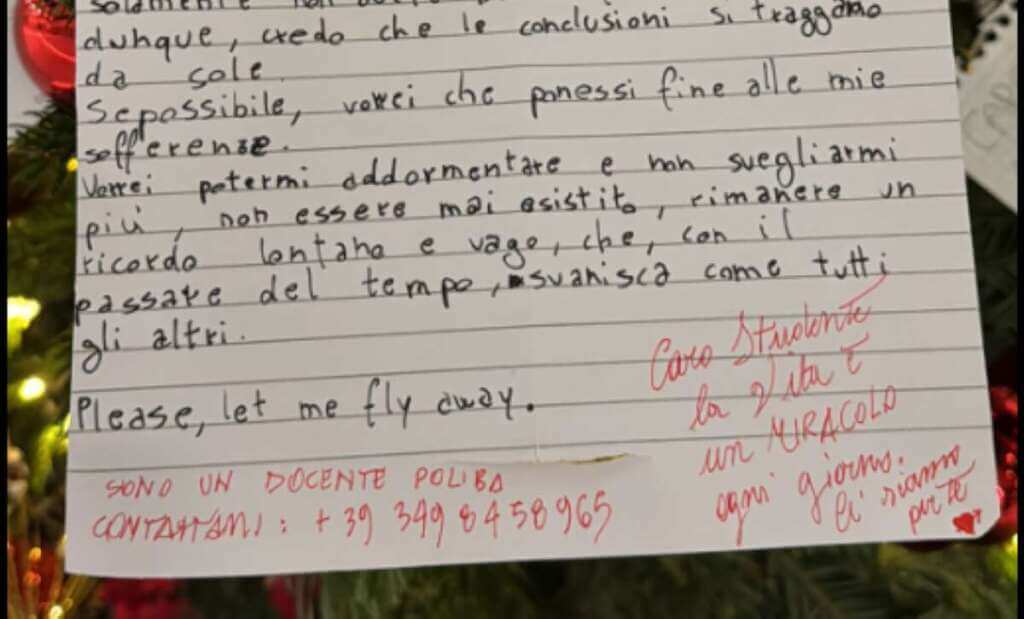 solamente non
dunque, credo che le conclusioni si traggano
da sole.
Se possibile, vorrei che ponessi fine alle mie
sofferenze.
Vorrei potermi addormentare e non svegliarmi
più, non essere mai esistito, rimanere un
ricordo lontano e vago, che, con il
passare del tempo, svanisca come tutti
gli altri.
Please, let me fly away.
SONO UN DOCENTE POLIBA
CONTATTAMI: +39 349 8458965
Caro Studente
la Vita è
un MIRACOLO
ogni giorno.
Ci siamo
per te